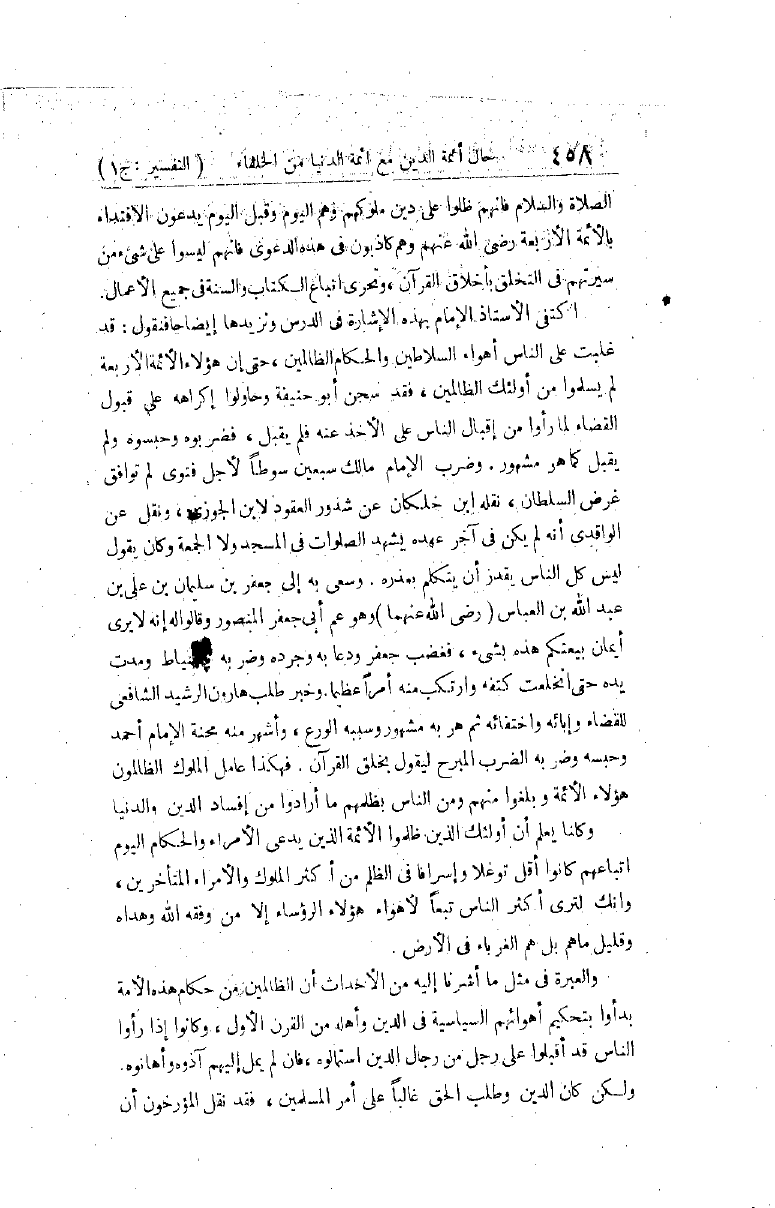 ٤٥٨ حال أئمة الدين مع أئمة الدنيا من الخلفاء ( التفسير : ج ١ )
الصلاة والسلام فانهم ظلوا على دين ملوكهم وهم اليوم وقبل اليوم يدعون الاقتداء
بالأئمة الأربعة رضى الله عنهم وهم كاذبون فى هذه الدعوى فانهم ليسوا على شىء من
سيرتهم فى التخلق بأخلاق القرآن ، وتحرى اتباع الكتاب والسنة فى جميع الأعمال.
اكتفى الأستاذ الإمام بهذه الإشارة فى الدرس ونزيدها إيضاحا فنقول : قد
غلبت على الناس أهواء السلاطين والحكام الظالمين ، حتى إن هؤلاء الأئمة الأربعة
لم يسلموا من أولئك الظالمين ، فقد سجن أبو حنيفة وحاولوا إكراهه على قبول
القضاء لما رأوا من إقبال الناس على الأخذ عنه فلم يقبل ، فضربوه وحبسوه ولم
يقبل كما هو مشهور . وضرب الإمام مالك سبعين سوطاً لأجل فتوى لم توافق
غرض السلطان ، نقله ابن خلكان عن شذور العقود لابن الجوزى ، ونقل عن
الواقدى أنه لم يكن فى آخر عهده يشهد الصلوات فى المسجد ولا الجمعة وكان يقول
ليس كل الناس يقدر أن يتكلم بعذره . وسعى به إلى جعفر بن سليمان بن على بن
عبد الله بن العباس ( رضى الله عنهما ) وهو عم أبى جعفر المنصور وقالوا له إنه لا يرى
أيمان بيعتكم هذه بشىء ، فغضب جعفر ودعا به وجرده وضربه ومدت
يده حتى انخلعت كتفه وارتكب منه أمراً عظيما. وخبر طلب هارون الرشيد الشافعى
للقضاء وإبائه واختفائه ثم هربه مشهور وسببه الورع ، وأشهر منه محنة الإمام أحمد
وحبسه وضربه الضرب المبرح ليقول بخلق القرآن . فهكذا عامل الملوك الظالمون
هؤلاء الأئمة وبلغوا منهم ومن الناس بظلمهم ما أرادوا من إفساد الدين والدنيا
وكلنا يعلم أن أولئك الذين ظلموا الأئمة الذين يدعى الأمراء والحكام اليوم
اتباعهم كانوا أقل توغلا وإسرافا فى الظلم من أكثر الملوك والأمراء المتأخرين ،
وانك لترى أكثر الناس تبعاً لأهواء هؤلاء الرؤساء إلا من وفقه الله وهداه
وقليل ماهم بل هم الغرباء فى الأرض .
والعبرة فى مثل ما أشرنا إليه من الأحداث أن الظالمين من حكام هذه الأمة
بدأوا بتحكيم أهوائهم السياسية فى الدين وأهله من القرن الأول ، وكانوا إذا رأوا
الناس قد أقبلوا على رجل من رجال الدين استمالوه ، فان لم يمل إليهم آذوه وأهانوه.
ولكن كان الدين وطلب الحق غالباً على أمر المسلمين ، فقد نقل المؤرخون أن